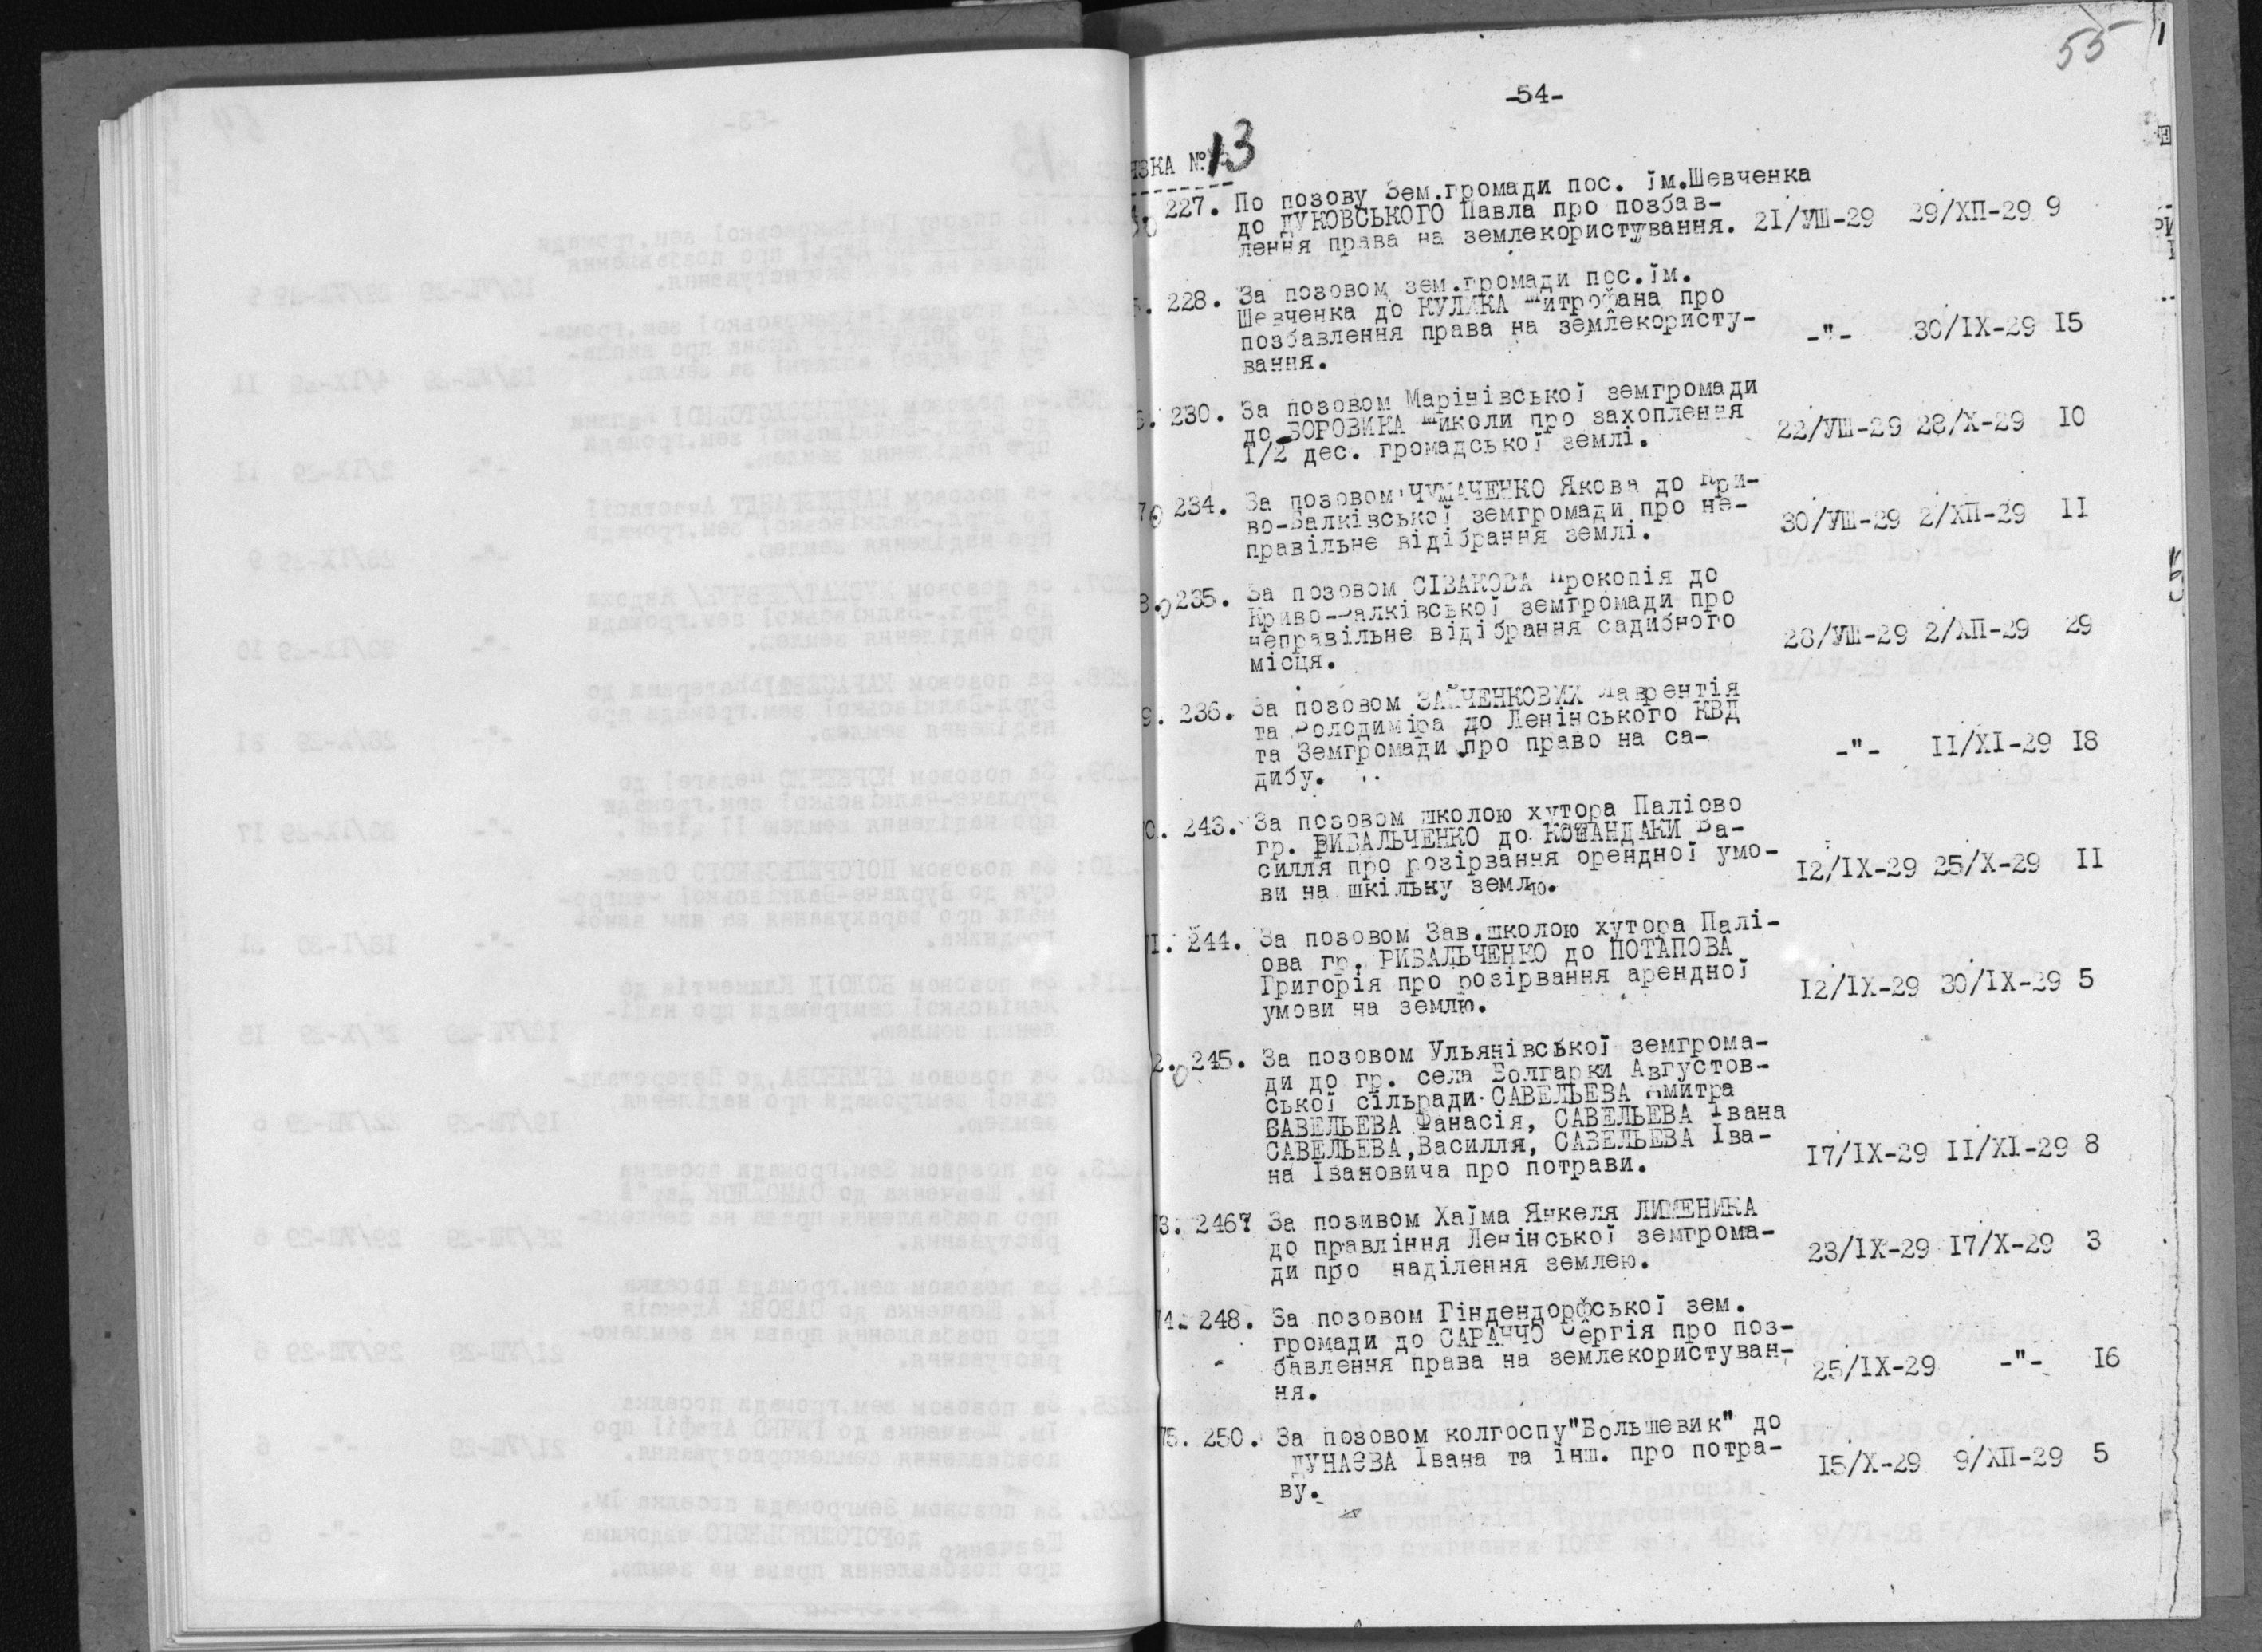 55
-54-
№ 13
227. По позову Зем.громади пос. ім.Шевченка
до ДУКОВСЬКОГО Павла про позбав-
лення права на землекористування. 21/УШ-29 29/ХП-29 9
228. За позовом зем.громади пос.ім.
Шевченка до КУЛИКА Митрофана про
позбавлення права на землекористу-
вання. -"- 30/ІХ-29 I5
230. За позовом Марінівської земгромади
до БОРОВИКА Миколи про захоплення
I/2 дес. громадської землі. 22/УШ-29 28/Х-29 IO
234. За позовом ЧУМАЧЕНКО Якова до Кри-
во-Балківської земгромади про не-
правільне відібрання землі. 30/УШ-29 2/ХП-29 II
235. За позовом СІВАКОВА Прокопія до
Криво-Балківської земгромади про
неправільне відібрання садибного
місця. 28/УШ-29 2/ХП-29 29
236. За позовом ЗАЙЧЕНКОВИХ Лаврентія
та Володиміра до Ленінського КВД
та Земгромади про право на са-
дибу. -"- II/XI-29 I8
243. За позовом школою хутора Паліово
гр. РИБАЛЬЧЕНКО до КОМАНДАКИ Ва-
силля про розірвання орендної умо-
ви на шкільну землю. I2/IX-29 25/X-29 II
244. За позовом Зав.школою хутора Палі-
ова гр. РИБАЛЬЧЕНКО до ПОТАПОВА
Григорія про розірвання арендної
умови на землю. I2/IX-29 30/IX-29 5
245. За позовом Ульянівської земгрома-
ди до гр. села Болгарки Августов-
ської сільради САВЕЛЬЕВА Дмитра
САВЕЛЬЕВА Фанасія, САВЕЛЬЕВА Івана
САВЕЛЬЕВА,Василля, САВЕЛЬЕВА Іва-
на Івановича про потрави. I7/IX-29 II/XI-29 8
2467 За позивом Хаїма Янкеля ЛИМЕНИКА
до правління Ленінської земгрома-
ди про наділення землею. 23/IX-29 I7/X-29 3
248. За позовом Гіндендорфської зем.
громади до САРАНЧО Сергія про поз-
бавлення права на землекористуван-
ня. 25/IX-29 -"- I6
75. 250. За позовом колгоспу"Большевик" до
ДУНАЄВА Івана та інш. про потра-
ву. I5/X-29 9/ХП-29 5